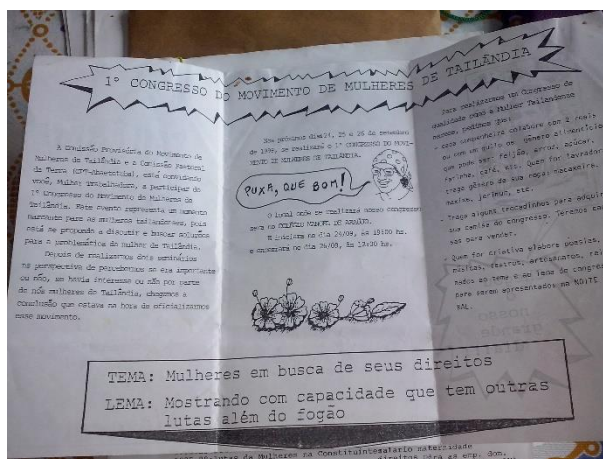 1º CONGRESSO DO MOVIMENTO DE MULHERES DE TAILÂNDIA
A Comissão Provisória do Movimento de
Mulheres de Tailândia e a Comissão Pastoral
da Terra (CPT-Abaetetuba), está convidando
você, Mulher trabalhadora, a participar do
1º Congresso do Movimento de Mulheres de
Tailândia. Este evento representa um momento
marcante para as mulheres tailandenses, pois
está se propondo a discutir e buscar soluções
para a problemática da mulher de Tailândia.
Depois de realizarmos dois seminários
na perspectiva de percebermos se era importante
ou não, se havia interesse ou não por parte
de nós mulheres de Tailândia, chegamos a
conclusão que estava na hora de oficializarmos
esse movimento.
Nos próximos dias 24, 25 e 26 de setembro
de 1998, se realizará o 1º CONGRESSO DO MOVI-
MENTO DE MULHERES DE TAILÂNDIA.
PUXA, QUE BOM!
O local onde se realizará nosso congresso
será no
E iniciará no dia 24/09, às 19:00 hs.
e encerrará no dia 26/09, às 12:00 hs.
Para realizarmos um Congresso de
qualidade para a Mulher Tailandense
- cada companheira colabore com 2 reais
ou com um quilo de gênero alimentício
que pode ser: feijão, arroz, açúcar,
farinha, café, etc. Quem for lavradora
traga gênero da sua roça: macaxeira,
jerimum, etc.
- Traga alguns trocadinhos para adquirir
sua camisa do congresso. Teremos
para vender.
- Quem for criativa elabore poesias,
músicas, teatros, artesanatos,
ao tema e ao lema do congresso
para serem apresentados na NOITE
TEMA: Mulheres em busca de seus direitos
LEMA: Mostrando com capacidade que tem outras
lutas além do fogão
de Mulheres na Constituinte salário maternidade